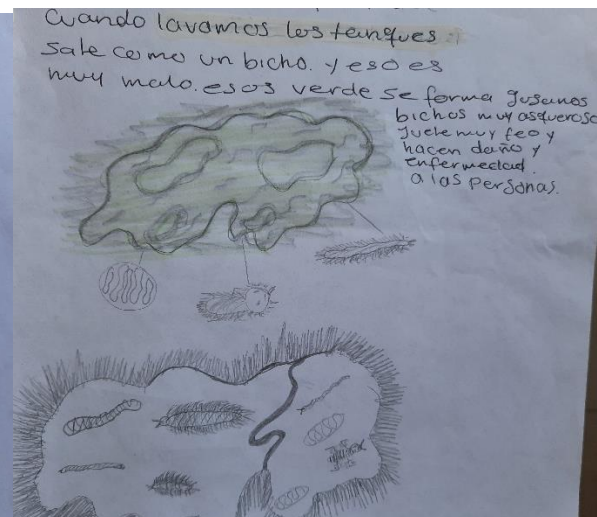 Cuando lavamos los tanques
Sale como un bicho. y eso es
muy malo. esos verde se forma gusanos
bichos muy asqueroso
guele muy feo y
hacen daño y
enfermedad.
a las personas.